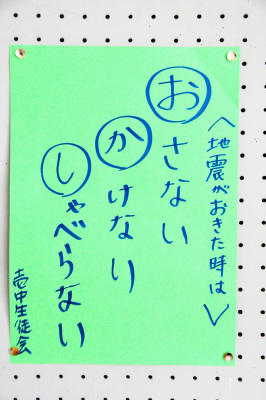 〈地震がおきた時は〉
おさない
かけなり
しゃべらない
壱中生徒会